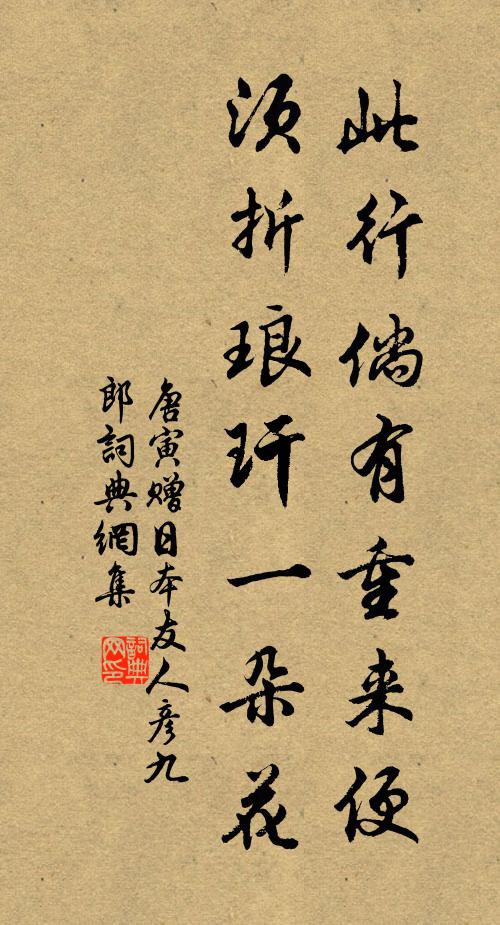 此行倘有重来便
须折琅玕一朵花
唐寅赠日本友人彦九
郎詞典網集
詞典
网印